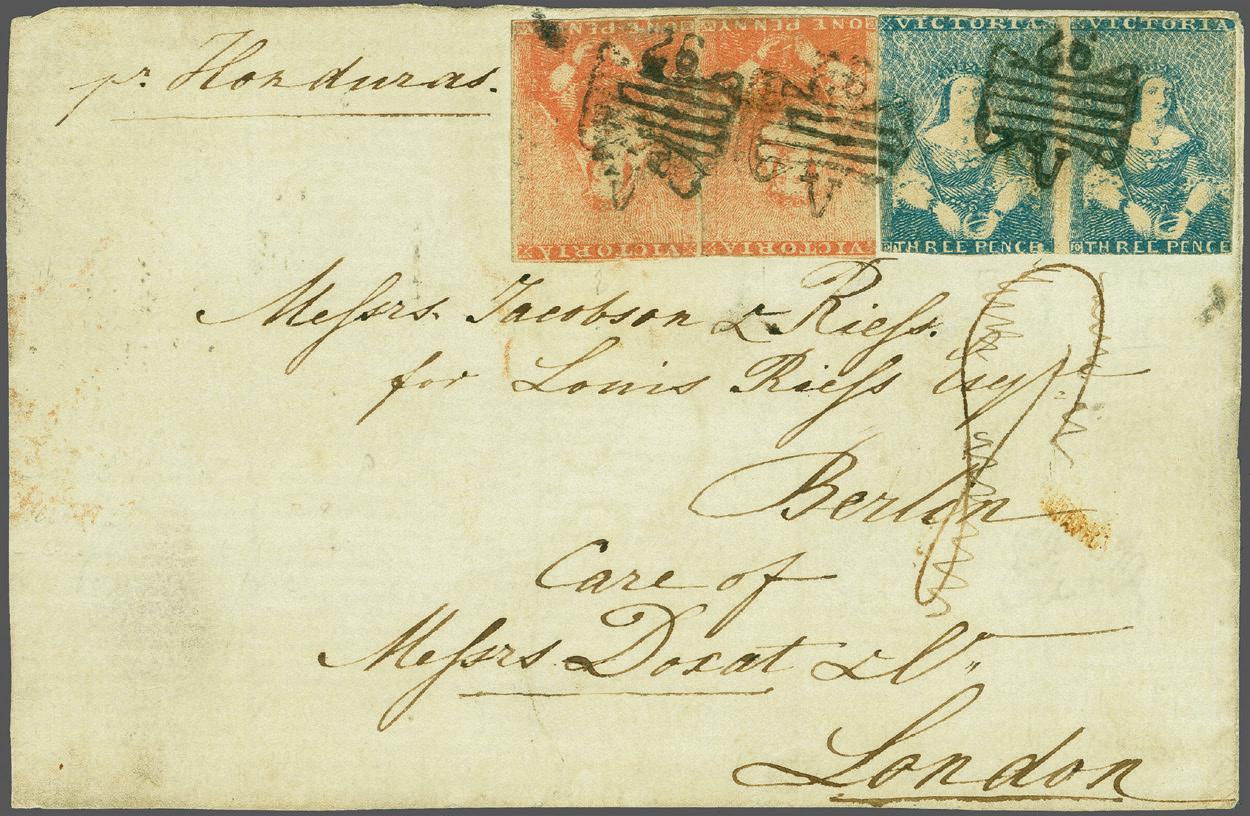 pr. Honduras.
ONE PENNY ONE PENNY
VICTORIA VICTORIA
VICTORIA VICTORIA
THREE PENCE THREE PENCE
26 V
26 V
2 V
Messrs. Jacobson & Riess.
for Louis Riess Esqre
Berlin
Care of
Messrs Doxat & Co
London